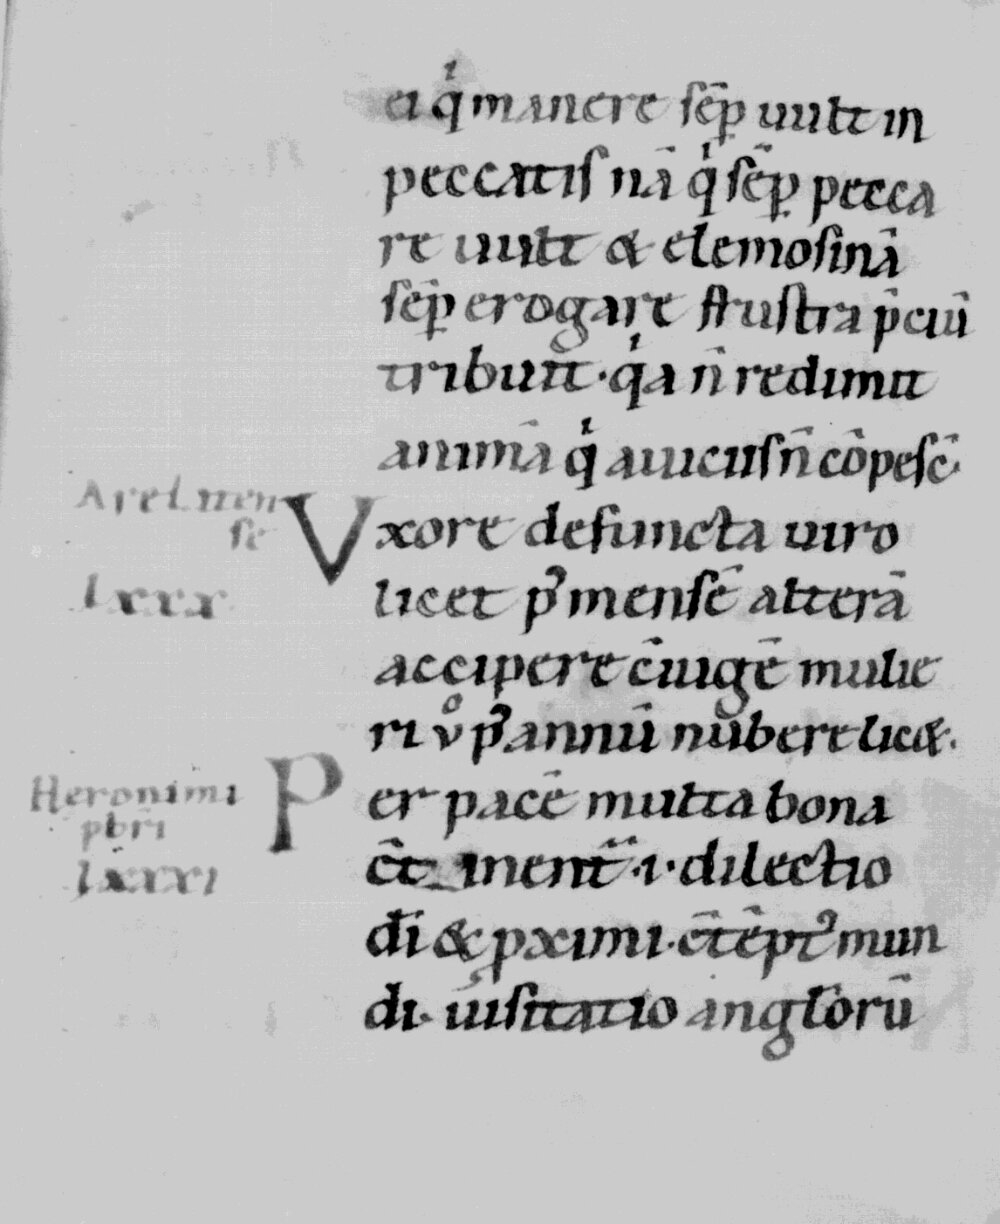 ei qͥ manere sēp uult in
peccatis nā qͥ sēp pecca
re uult & elemosinā
sēp erogare frustra p̄ciū
tribuit̄ · qͥa n̄ redimit
animā qͥ a uiciis n̄ cōpesc̄·
Arelaten
se
lxxx
Vxore defuncta uiro
licet pꝰ mensē alterā
accipere c̄iugē mulie
ri uͦ pꝰ annū nubere lic&·
Heronimi
pbr̄i
lxxxi
Per pacē multa bona
c̄t inen̄t · i · dilectio
dī & pximi · c̄tēptꝰ mun
di · uisitatio anglorū